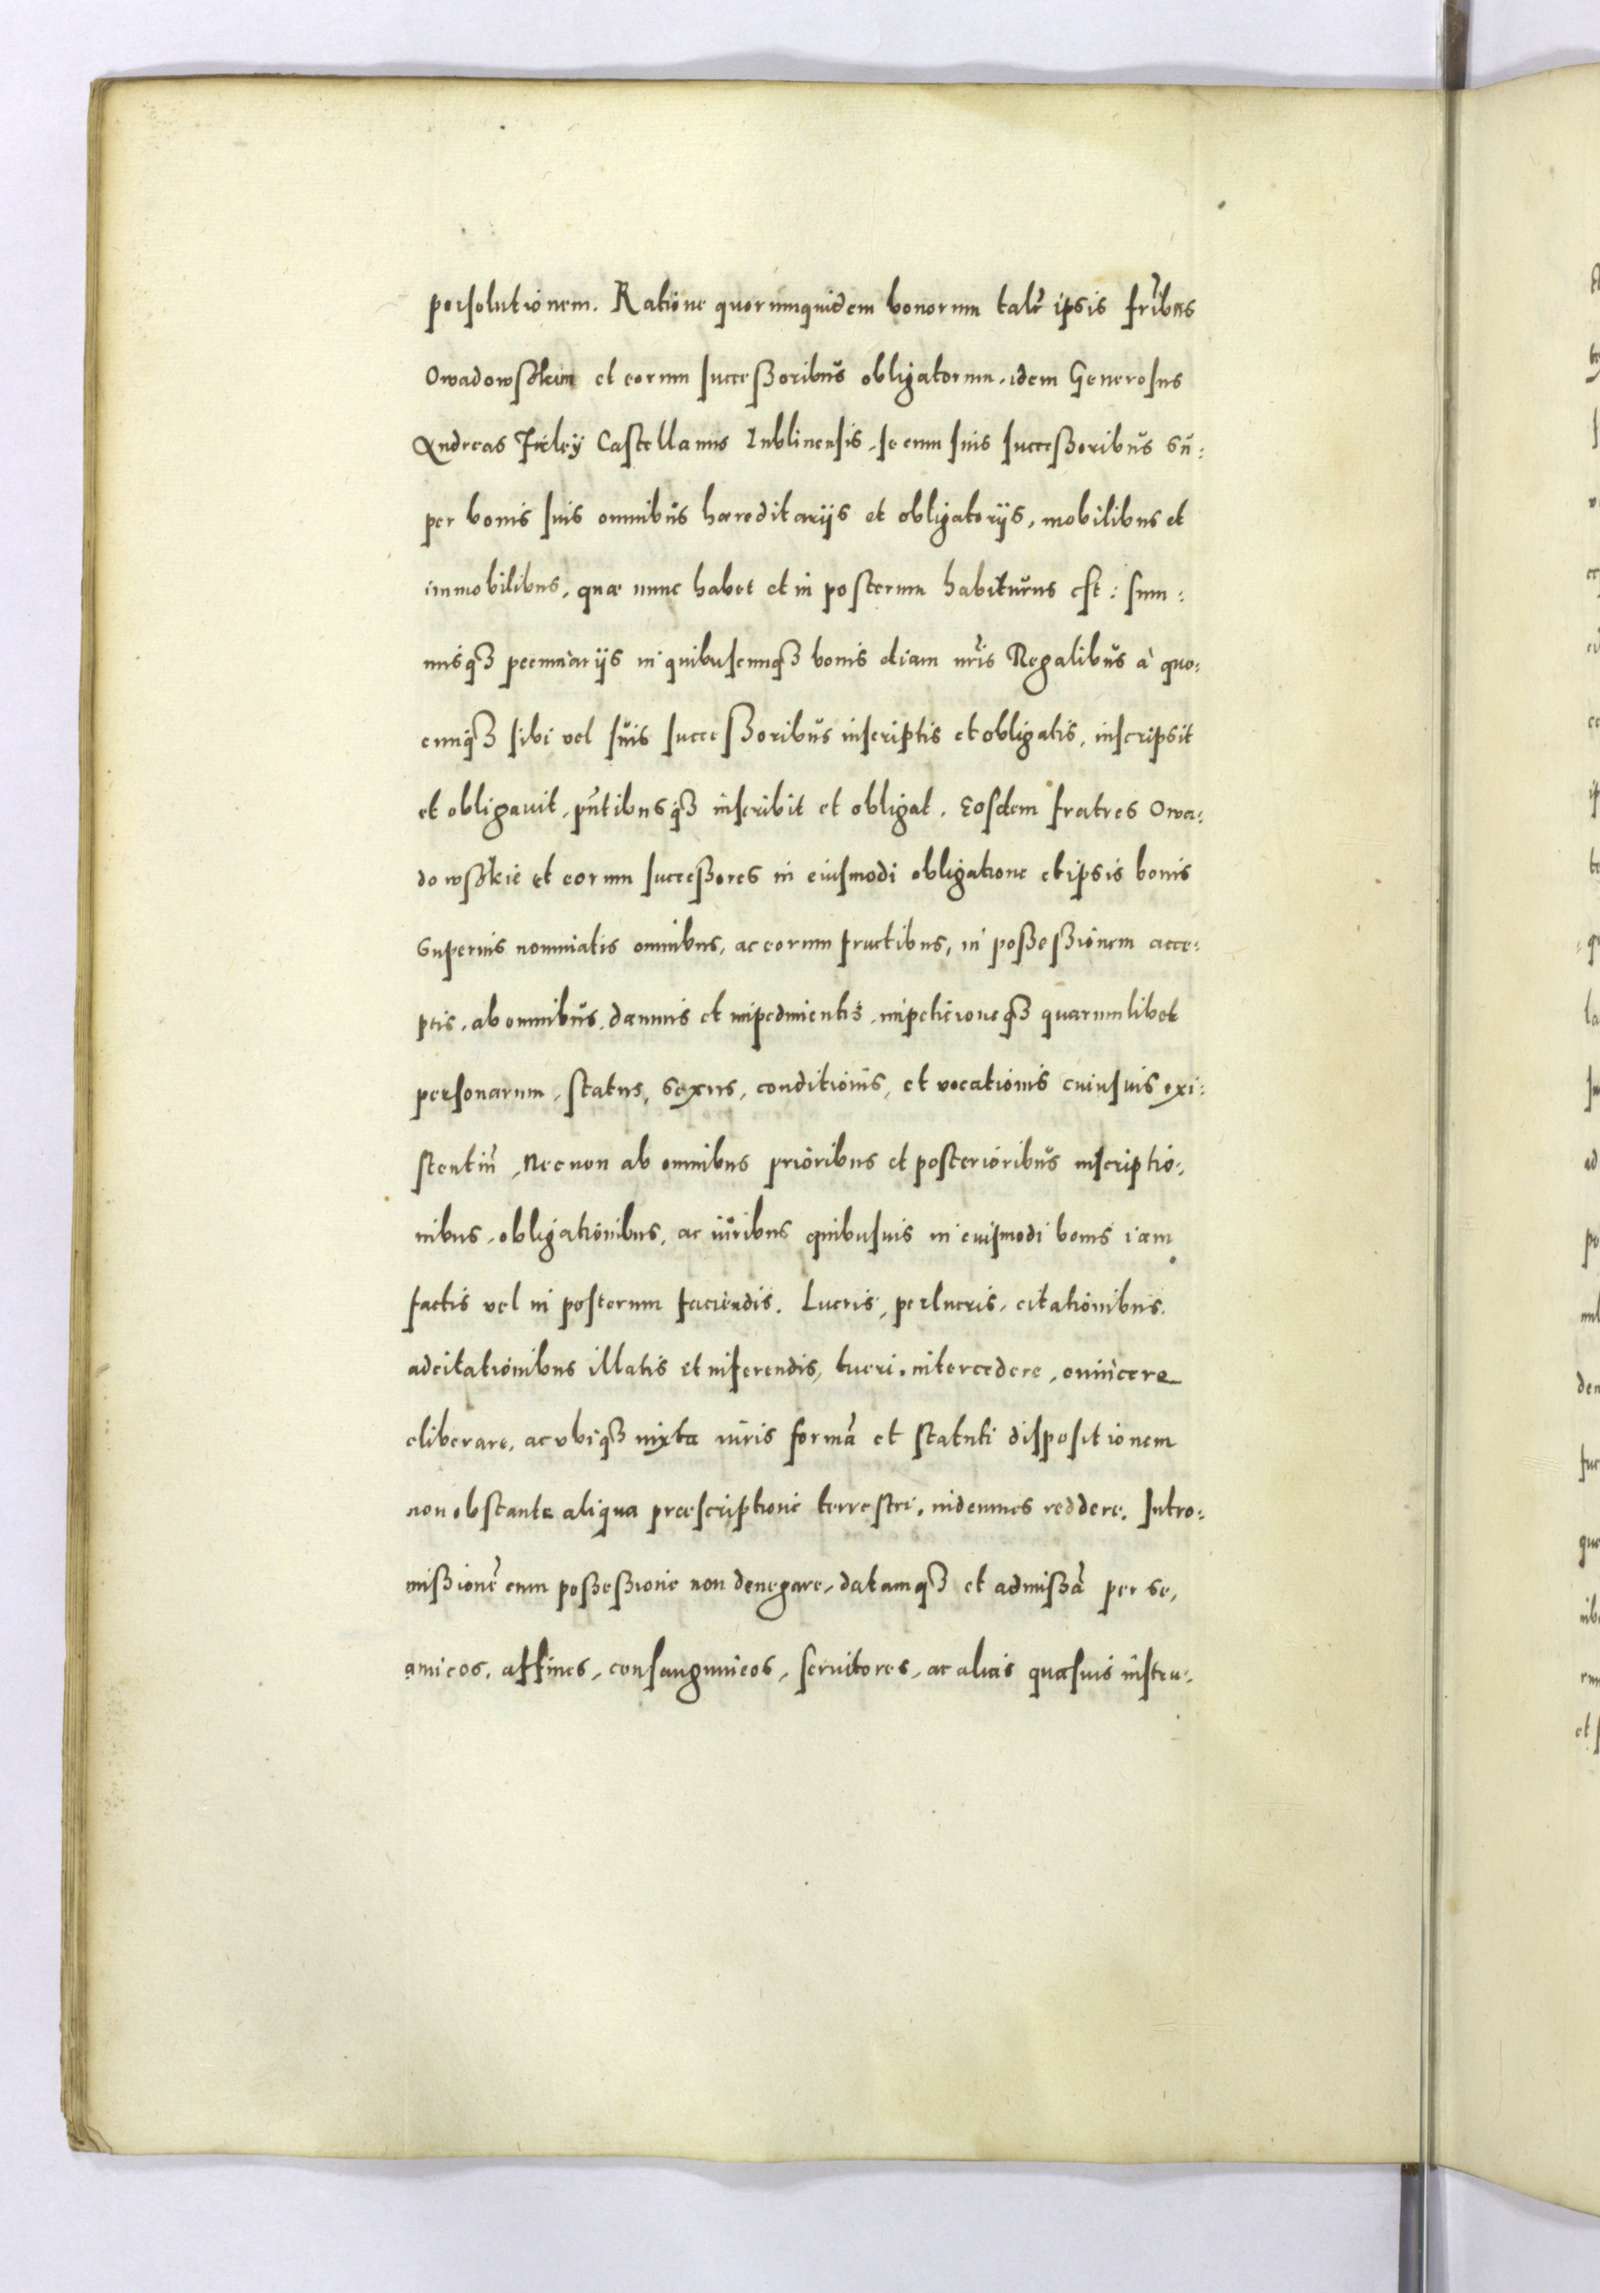 persolutionem. Ratione quorumquidem bonorum talr̃ ipsis fr̃ibus
Owadowskim et eorum successoribus obligatorum, idem Generosus
Andreas Firley Castellanus Lublinensis, se cum suis successoribus su:
per bonis suis omnibus hæreditarijs et obligatorijs, mobilibus et
immobilibus, quæ nunc habet et in posterum habiturus est: sum:
misq3 pecuniarijs in quibuscunq3 bonis etiam nr̃is Regalibus à quo:
cunq3 sibi vel suis successoribus inscriptis et obligatis, inscripsit
et obligauit, pñtibusq3 inscribit et obligat. Eosdem fratres Owa:
dowskie et eorum successores in eiusmodi obligatione et ipsis bonis
superius nominatis omnibus, ac eorum fructibus, in possessionem acce:
ptis, ab omnibus, damnis et impedimentis, impeticioneq3 quarumlibet
personarum, status, sexus, conditionis, et vocationis cuiusuis exi:
stentiũ, Necnon ab omnibus prioribus et posterioribus inscriptio:
nibus, obligationibus, ac iuribus quibusuis in euismodi bonis iam
factis vel in posterum faciendis. Lucris, perlucris, citationibus,
adcitationibus illatis et inferendis, tueri, intercedere, euincere
eliberare, ac vbiq3 iuxta iuris formã et statuti dispositionem
non obstante aliqua præscriptione terrestri, indemnes reddere. Intro:
missionẽ cum possessione non denegare, datamq3 et admissã per se,
amicos, affines, consanguineos, seruitores, ac alias quasuis instru: